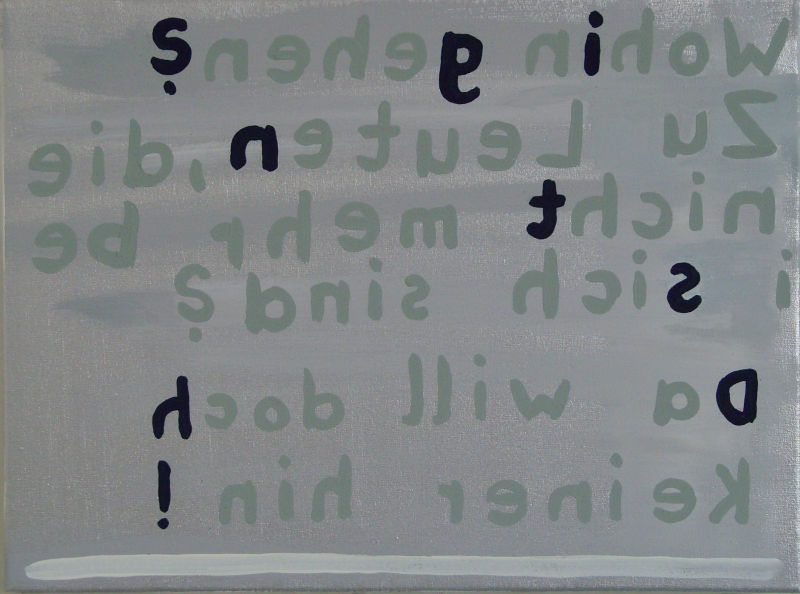 Wohin gehen?
Zu Leuten, die
nicht mehr be
i sich sind?
Da will doch
Keiner hin!